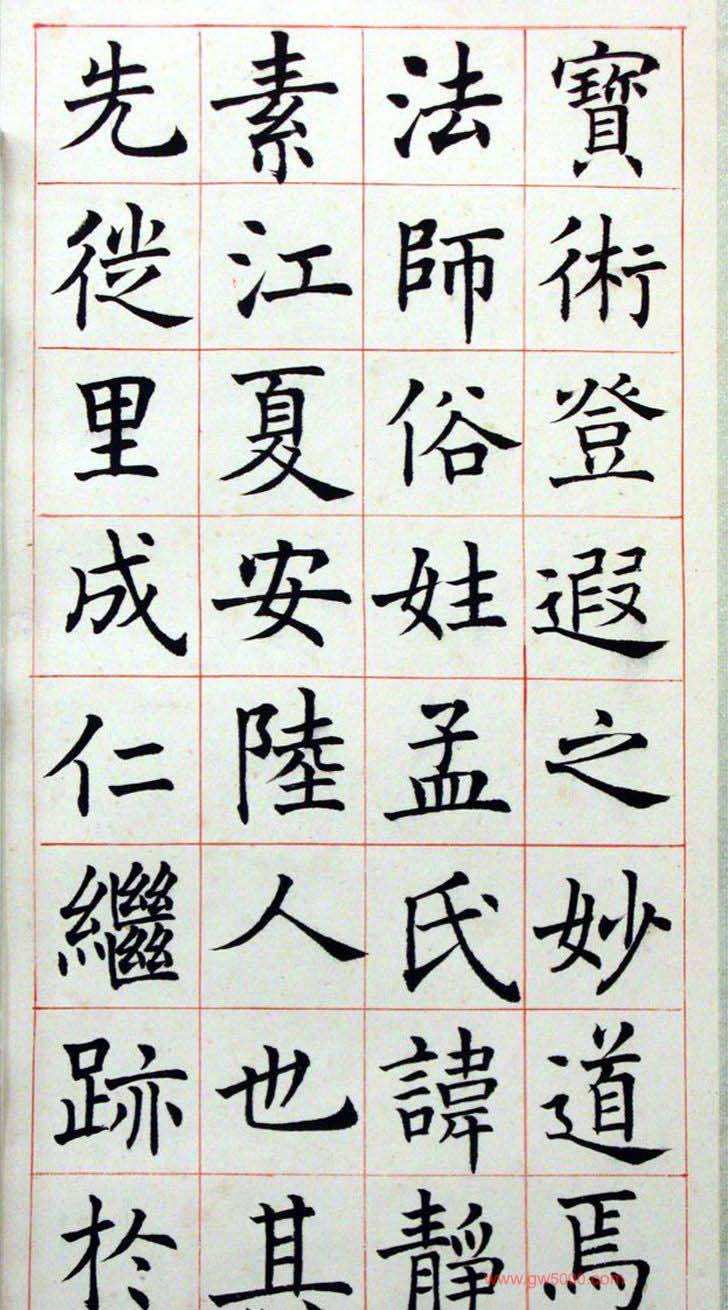 寳術登遐之妙道焉
法師俗姓孟氏諱靜
素江夏安陸人也其
先徙里成仁繼跡於
www.gw5000.com